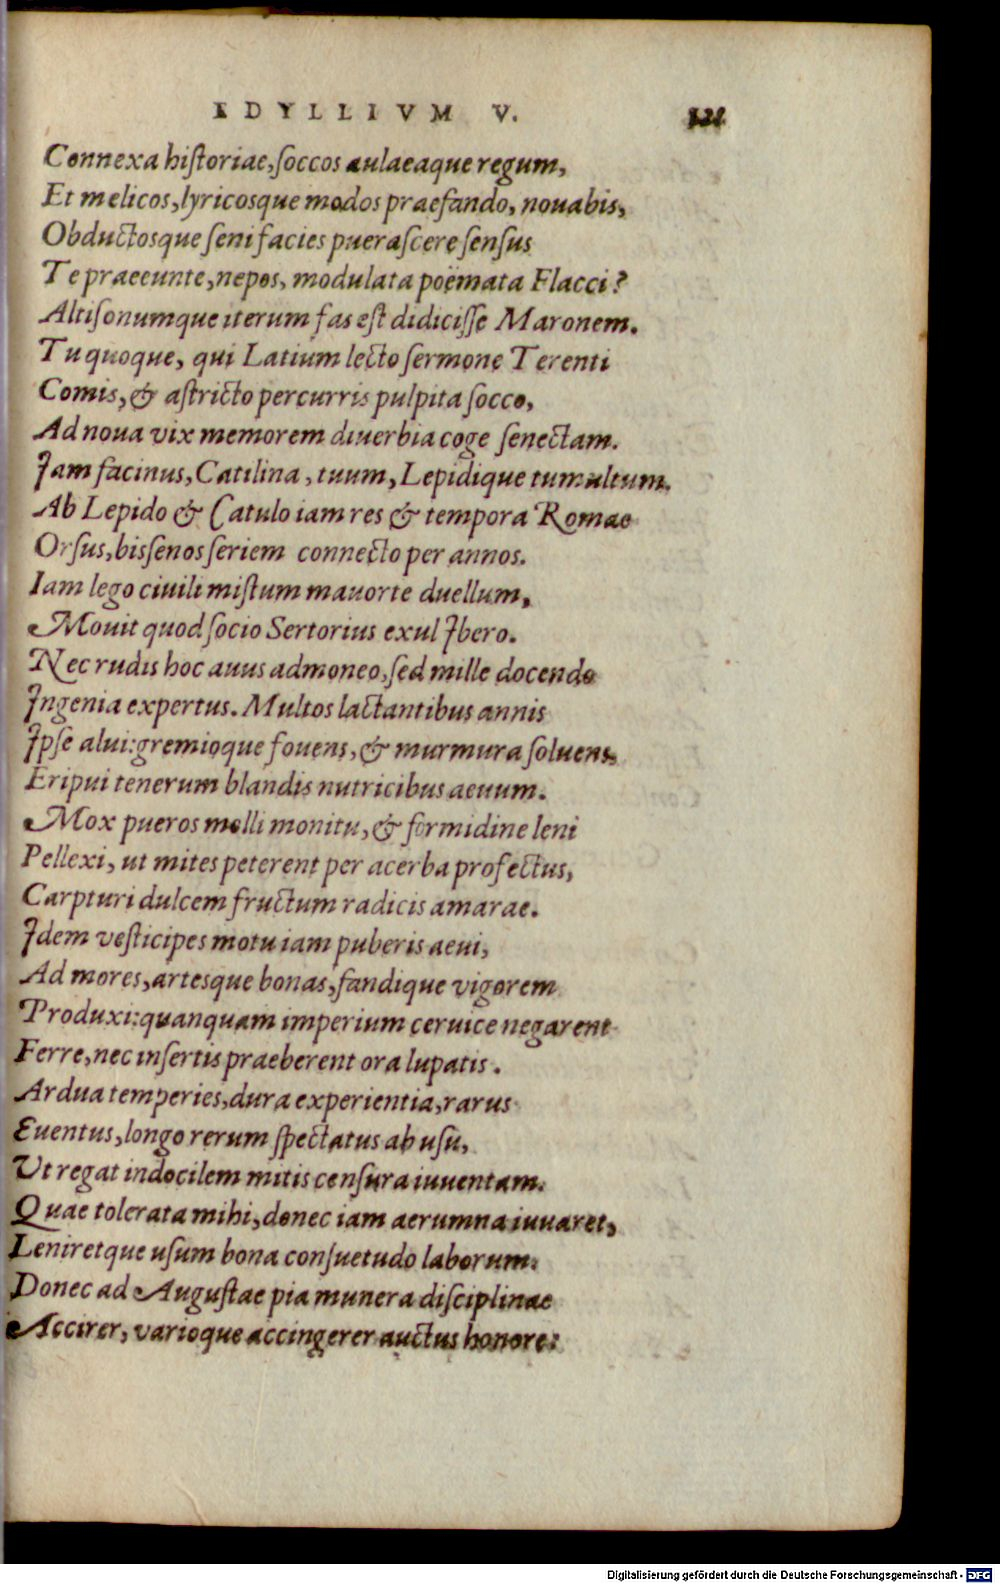 IDYLLIVM V. 121
Connexa hiſtoriae, ſoccos aulaeaque regum,
Et melicos, lyricosque modos praefando, nouabis,
Obductosque ſeni facies pueraſcere ſenſus
Te praeeunte, nepos, modulata poëmata Flacci?
Altiſonumque iterum fas eſt didiciſſe Maronem.
Tu quoque, qui Latium lecto ſermone Terenti
Comis, & aſtricto percurris pulpita ſocco,
Ad noua vix memorem diuerbia coge ſenectam.
Jam facinus, Catilina, tuum, Lepidique tumultum.
Ab Lepido & Catulo iam res & tempora Romae
Orſus, biſſenos ſeriem connecto per annos.
Iam lego ciuili miſtum mauorte duellum,
Mouit quod ſocio Sertorius exul Jbero.
Nec rudis hoc auus admoneo, ſed mille docendo
Jngenia expertus. Multos lactantibus annis
Jpſe alui: gremioque fouens, & murmura ſoluens,
Eripui tenerum blandis nutricibus aeuum.
Mox pueros molli monitu, & formidine leni
Pellexi, ut mites peterent per acerba profectus,
Carpturi dulcem fructum radicis amarae.
Jdem veſticipes motu iam puberis aeui,
Ad mores, artesque bonas, fandique vigorem
Produxi: quanquam imperium ceruice negarent
Ferre, nec inſertis praeberent ora lupatis.
Ardua temperies, dura experientia, rarus
Euentus, longo rerum ſpectatus ab uſu,
Ut regat indocilem mitis cenſura iuuentam.
Quae tolerata mihi, donec iam aerumna iuuaret,
Leniretque uſum bona conſuetudo laborum.
Donec ad Auguſtae pia munera diſciplinae
Accirer, varioque accingerer auctus honore:
Digitalisierung gefördert durch die Deutsche Forschungsgemeinschaft - DFG